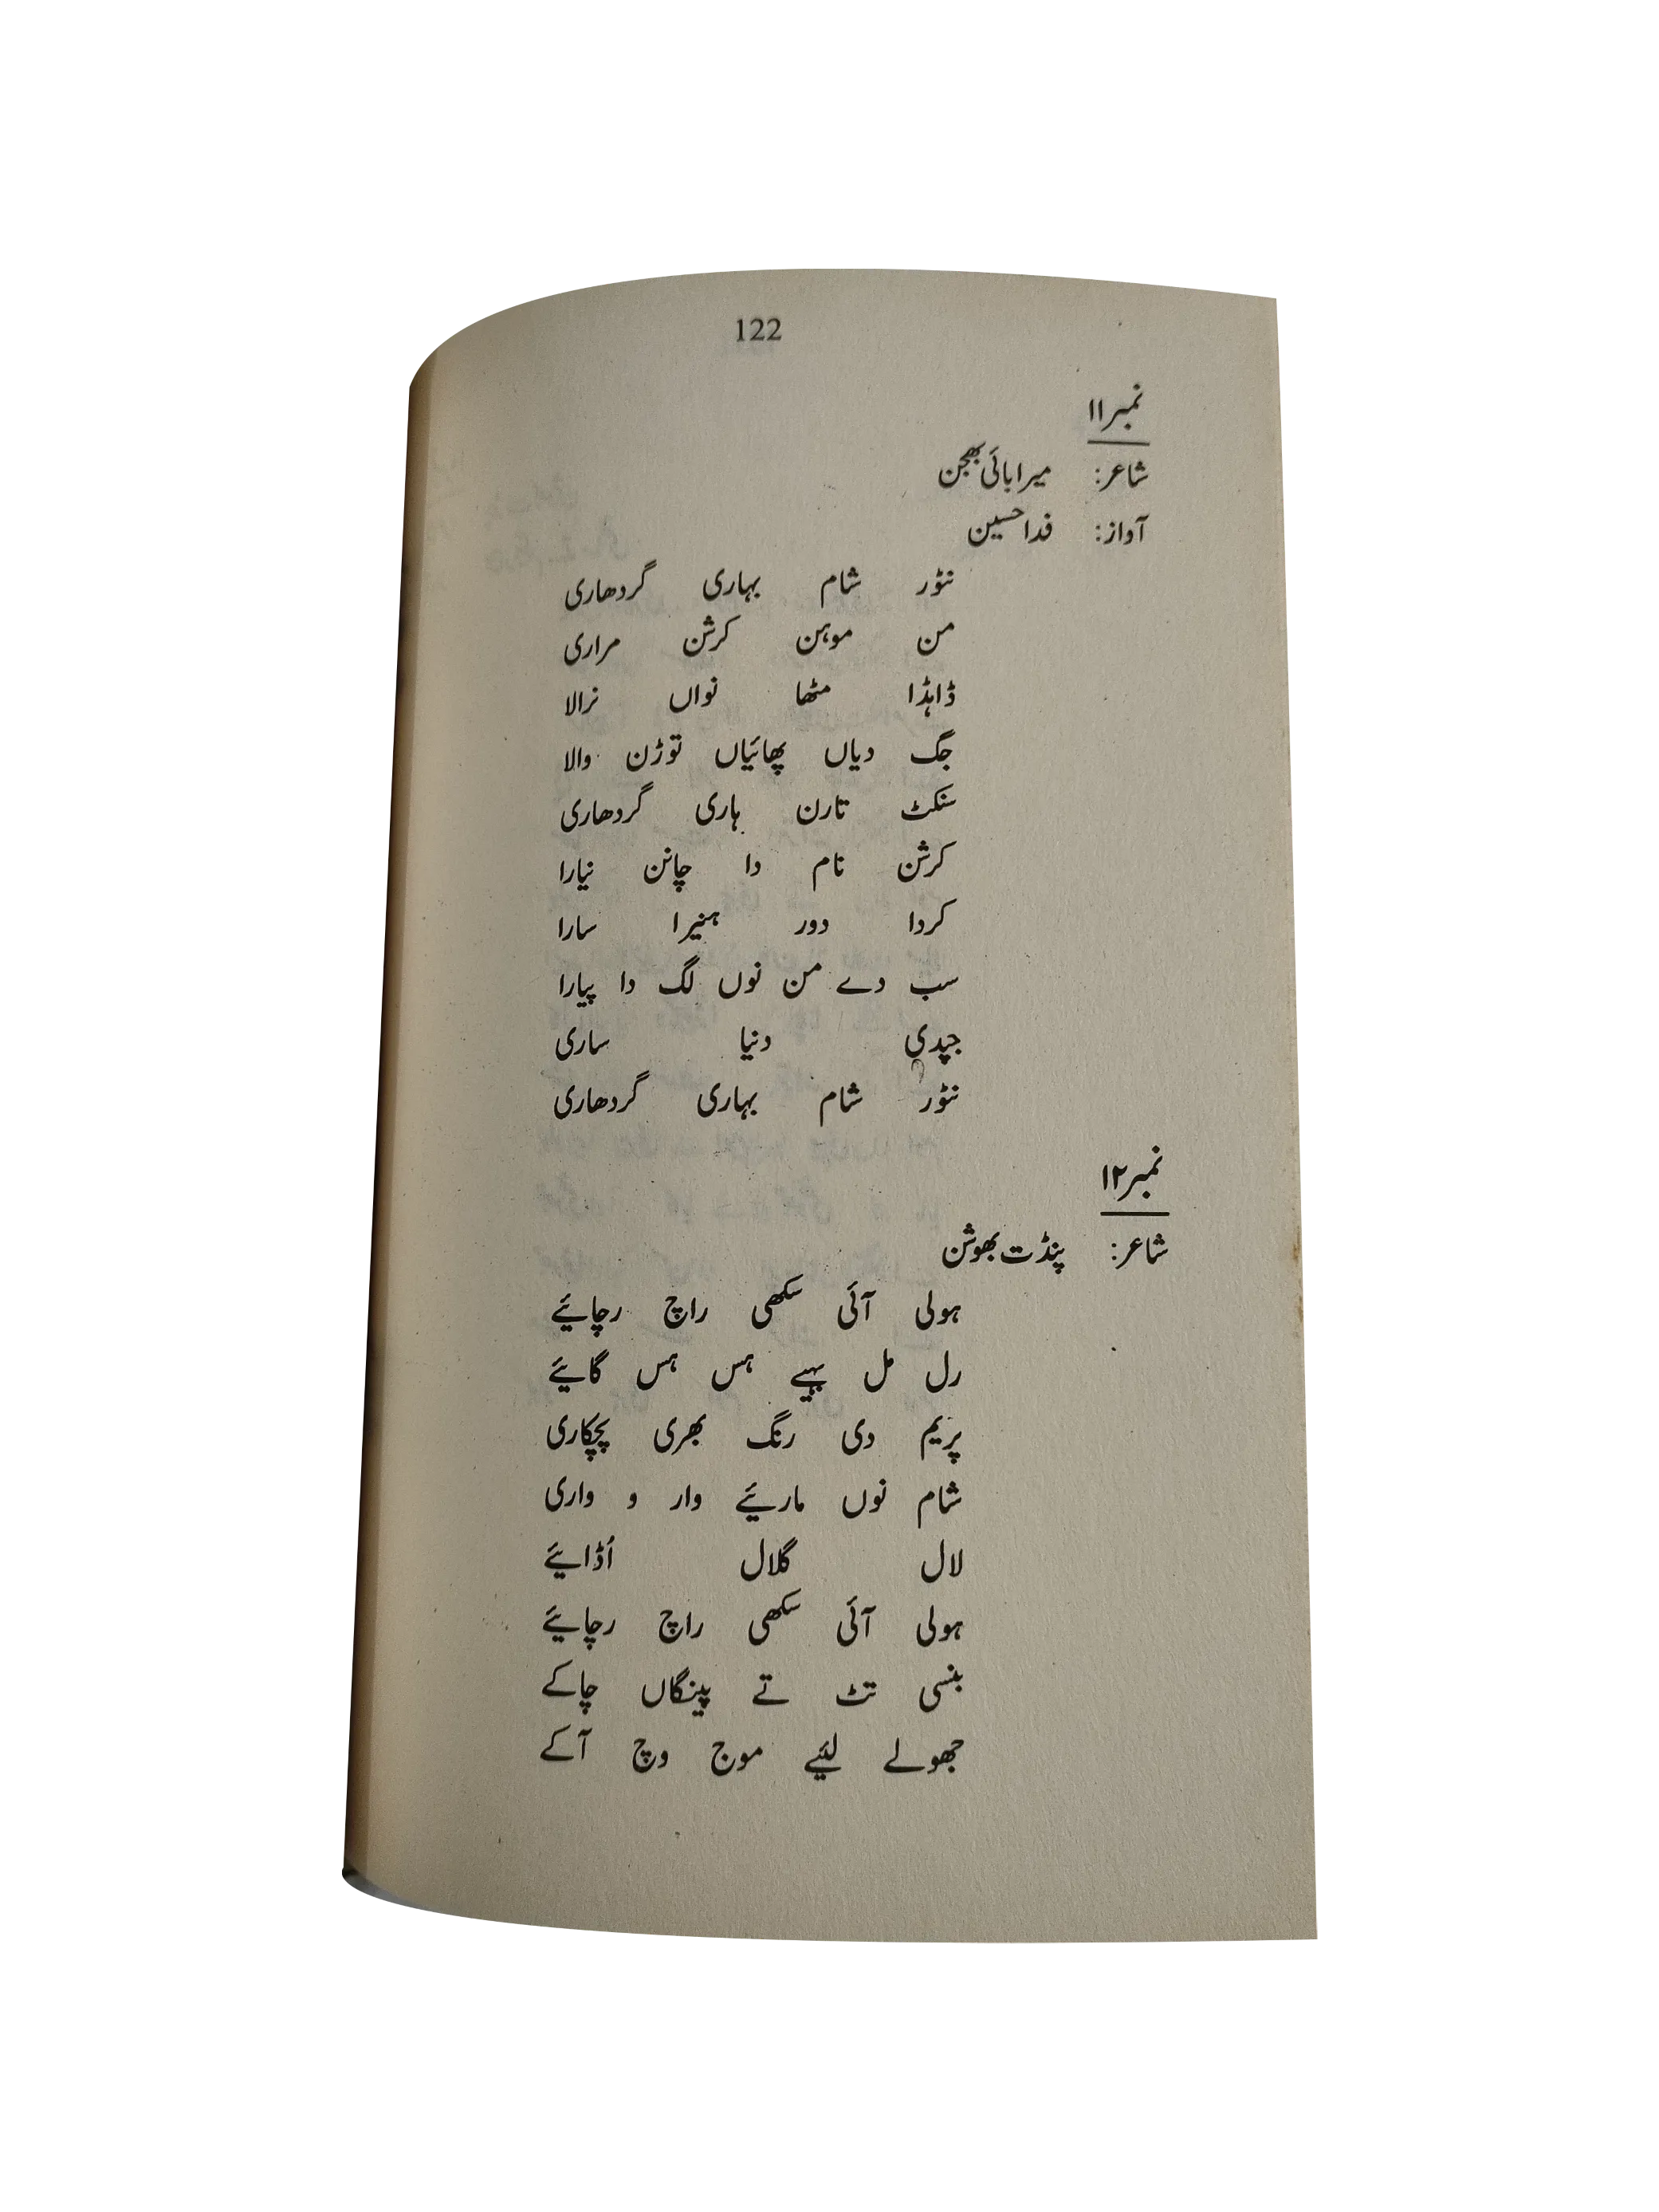 122
نمبر۱۱
شاعر: میرابائی بھجن
آواز: فدا حسین
نٹور شام بہاری گردھاری
من موہن کرشن مراری
ڈاہڈا مٹھا نواں نرالا
جگ دیاں پھائیاں توڑن والا
سنکٹ تارن ہاری گردھاری
کرشن نام دا چانن نیارا
کردا دور ہنیرا سارا
سب دے من نوں لگ دا پیارا
جپدی دنیا ساری
نٹور شام بہاری گردھاری
نمبر۱۲
شاعر: پنڈت بھوشن
ہولی آئی سکھی راچ رچایئے
رل مل بہیے ہس ہس گایئے
پریم دی رنگ بھری پچکاری
شام نوں ماریئے وار و واری
لال گلال اُڈایئے
ہولی آئی سکھی راچ رچایئے
بنسی تٹ تے پینگاں چاکے
جھولے لیئے موج وچ آکے